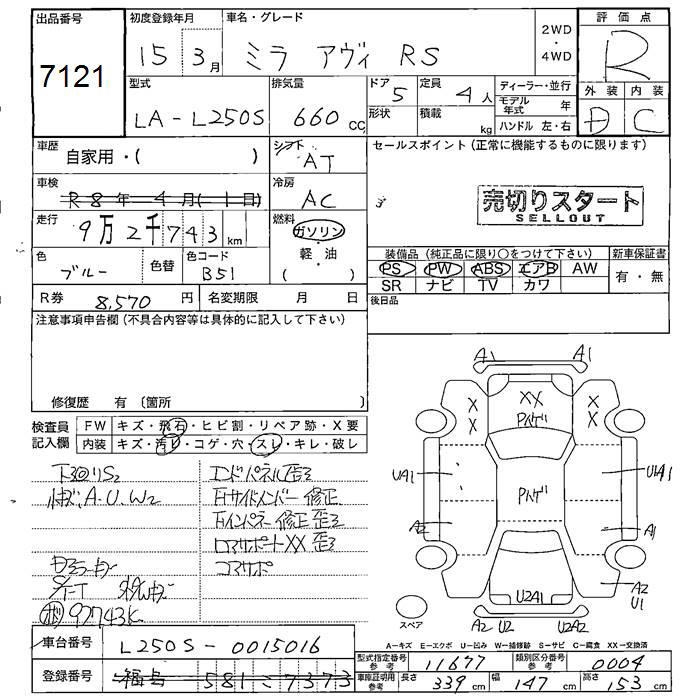 出品番号
7121
初度登録年月
15 3月
車名・グレード
ミラ アヴィ RS
2WD
・
4WD
評価点
R
型式
LA-L250S
排気量
660cc
ドア
5
形状
定員
4人
積載
kg
ディーラー・並行
モデル年式 年
ハンドル 左・右
外装 内装
D C
車歴
自家用・( )
シフト
AT
車検
R8年4月(1日)
冷房
AC
走行
9万2千743km
燃料
ガソリン
・
軽・油
( )
色
ブルー
色替
色コード
B51
R券 8,570円
名変期限 月 日
セールスポイント(正常に機能するものに限ります)
売切りスタート
SELLOUT
装備品(純正品に限り〇をつけて下さい)
PS PW ABS エアB AW
SR ナビ TV カワ
新車保証書
有・無
後日品
注意事項申告欄(不具合内容等は具体的に記入して下さい)
修復歴 有(箇所 )
検査員記入欄
FW キズ・飛石・ヒビ割・リペア跡・X要
内装 キズ・汚れ・コゲ・穴・スレ・キレ・破レ
A.U.W2
エンドパネル歪
サイドメンバー修正
インパネ修正歪
コアサポートXX歪
コアサポ
92743K
A1 A1
XX
Pハゲ
XX
XX
UA1
Pハゲ
UA1
A2
A1
A2
U1
U2A1
スペア
A2 U2 U2A2
A=キズ E=エクボ U=凹み W=補修跡 S=サビ C=腐食 XX=交換済
車台番号 L250S-0015016
登録番号 福島 581 7373
型式指定番号参考 11677
類別区分番号参考 0004
車庫証明用参考 長さ 339cm 幅 147cm 高さ 153cm